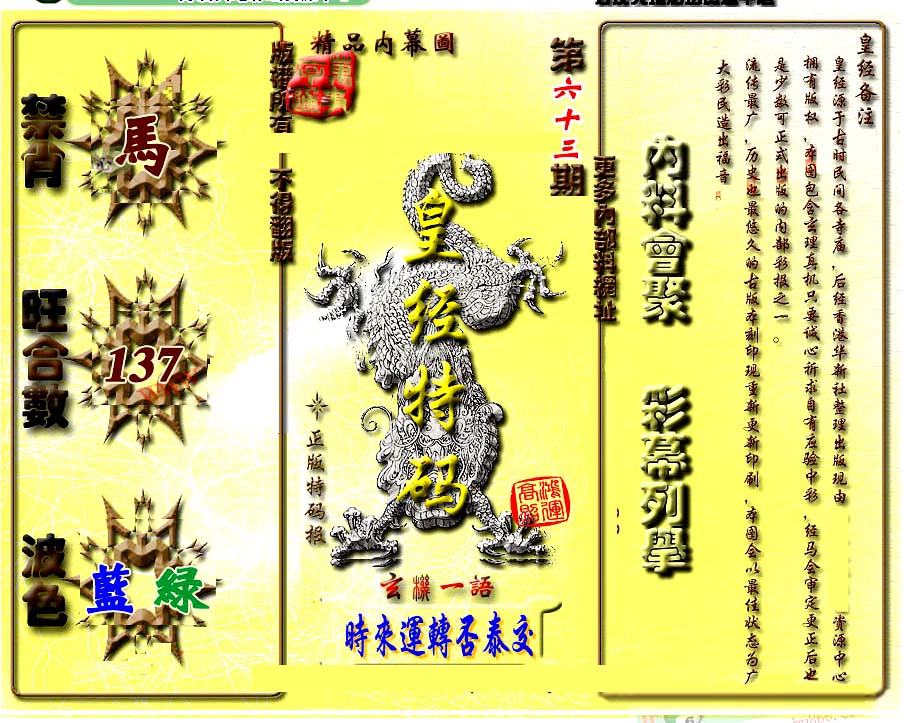 禁肖
馬
旺合數
137
波色
藍 綠
版權所有
不得翻版
精品內幕圖
第六十三期
皇经特码
正版特码招
鴻運高照
玄機一語
時來運轉否泰交
更多內部料網址
內料會聚
彩幕列舉
皇经备注
皇经源于古时民间各寺庙，后经香港华新社整理出版现由 资源中心
拥有版权，本图包含玄理真机只要诚心祈求自有应验中彩，经马会审定更正后也
是少数可正式出版的内部彩报之一。
流传最广，历史也最悠久的古版本刻印现重新更新印刷，本图会以最佳状态为广
大彩民造出福音